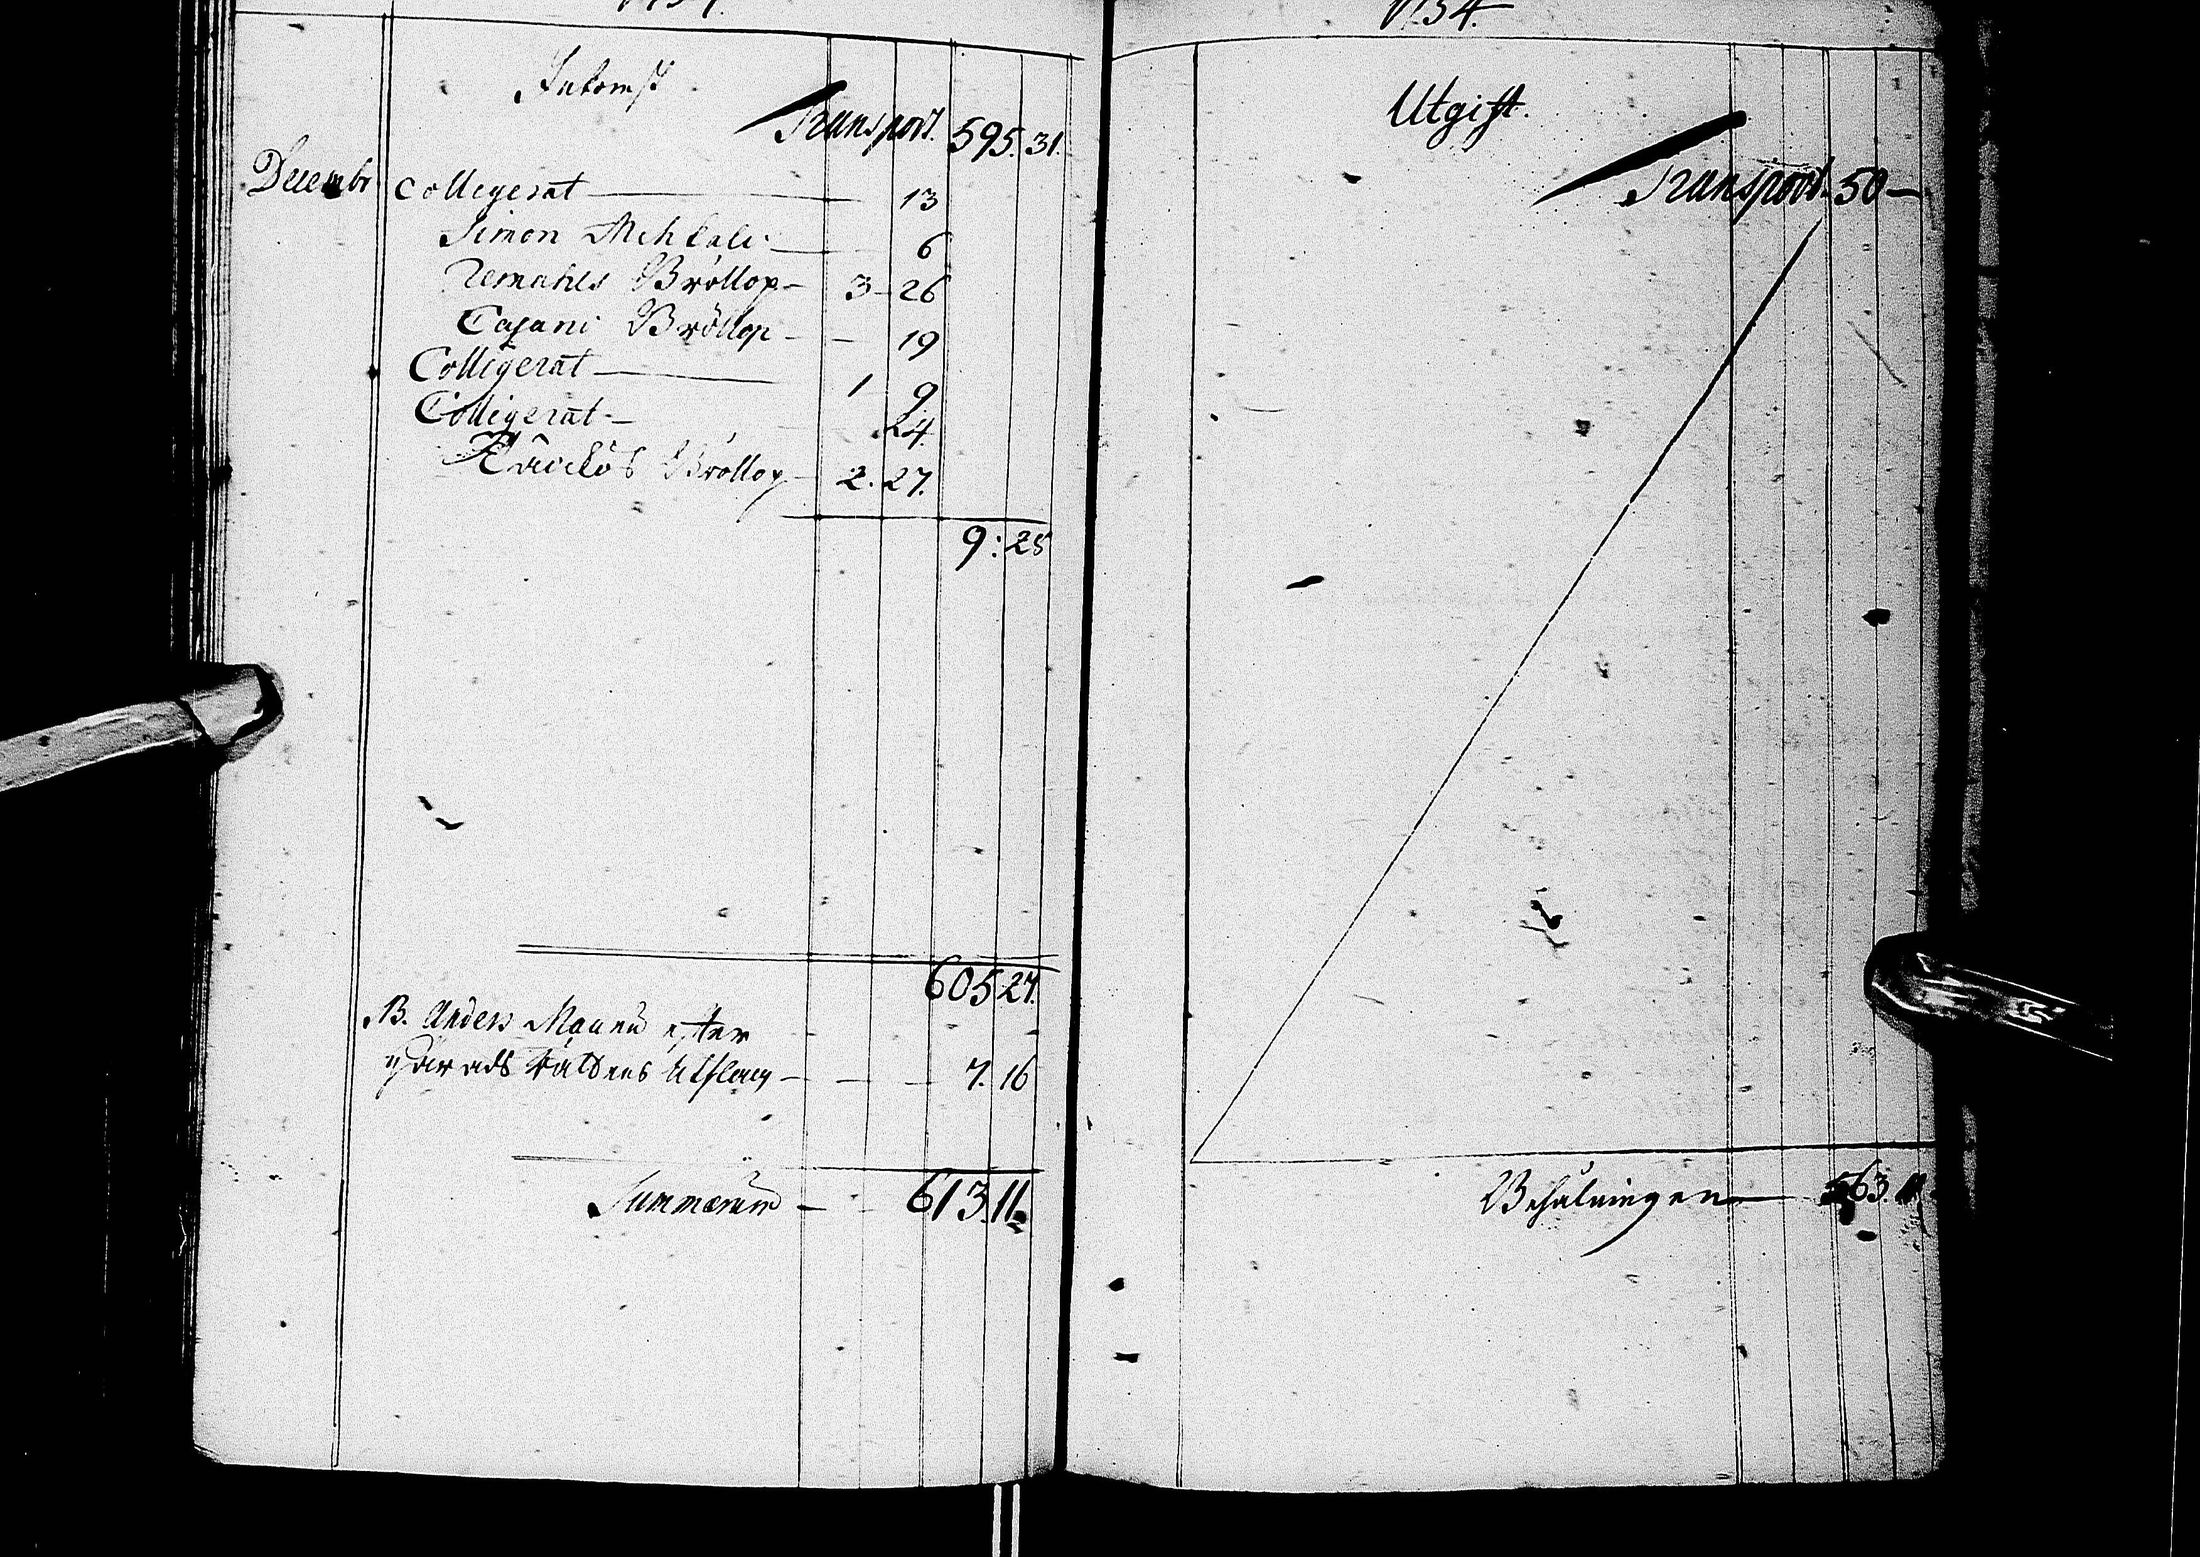 Inkomst
Transport. 595. 31.
Decembr Collegerat — 13
Simon Mihkali — 6
Bröllop — 3 — 26
Cajani Bröllop — — 19
Colligerat — 1 9
Colligerat — 24.
Bröllop — 2. 27.
9: 28
605 27.
B. Anders efter
Härads Rättens Utslag — — — 7. 16
Summarum — — 613. 11
1734.
Utgift.
Transport. 50 —
Behålningen — 563. 11